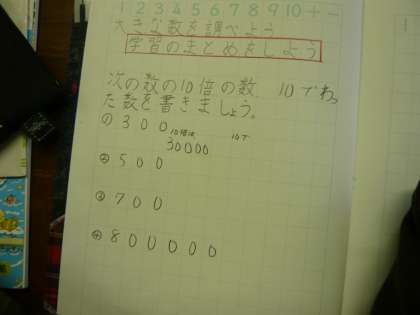 1 2 3 4 5 6 7 8 9 10 + −
大きな数を調べよう
学習のまとめをしよう
次の数の10倍の数、10でわっ
た数を書きましょう。
① 300
10倍は 10で
30000
② 500
③ 700
④ 800000